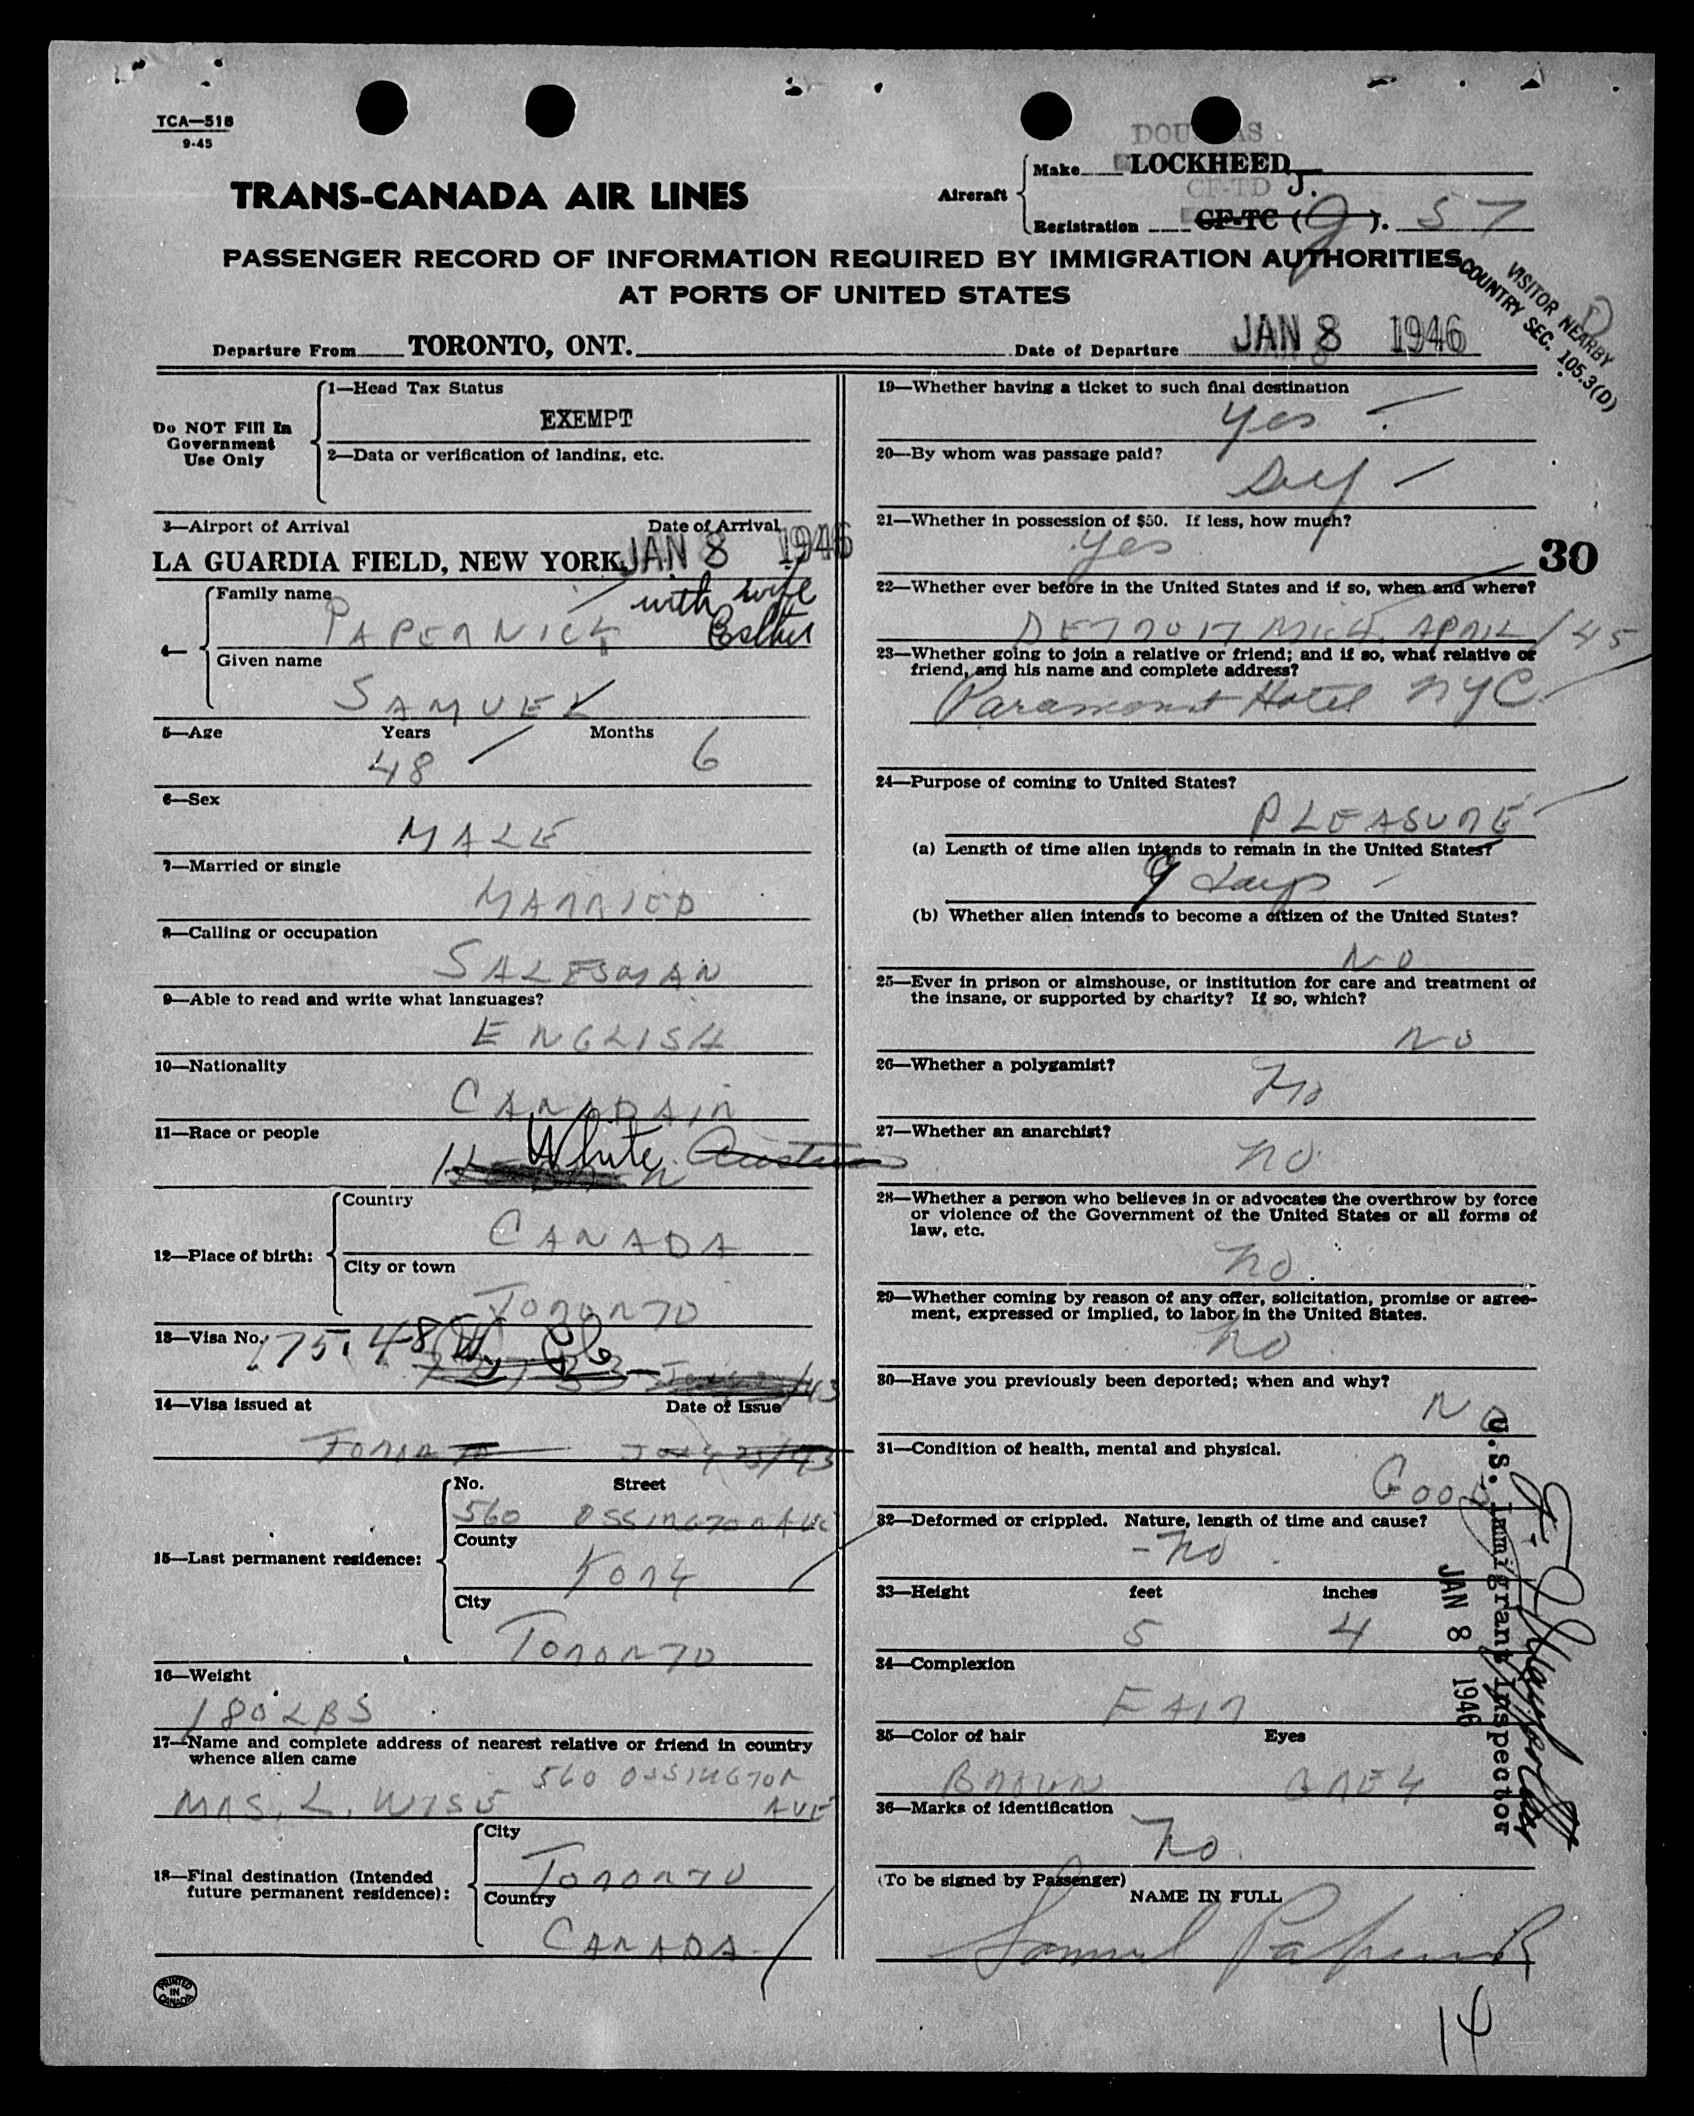 TCA—518
9-45
DOUGLAS
Aircraft
Make LOCKHEED
CF-TD J.
Registration CF-TC ( ). 57
TRANS-CANADA AIR LINES
PASSENGER RECORD OF INFORMATION REQUIRED BY IMMIGRATION AUTHORITIES
AT PORTS OF UNITED STATES
VISITOR NEARBY
COUNTRY SEC. 105.3(D)
Departure From TORONTO, ONT. Date of Departure JAN 8 1946
Do NOT Fill In
Government
Use Only
1—Head Tax Status
EXEMPT
2—Data or verification of landing, etc.
3—Airport of Arrival Date of Arrival
LA GUARDIA FIELD, NEW YORK JAN 8 1946
4—
Family name
with wife
PAPERNICK Esther
Given name
SAMUEL
5—Age Years Months
48 6
6—Sex
MALE
7—Married or single
MARRIED
8—Calling or occupation
SALESMAN
9—Able to read and write what languages?
ENGLISH
10—Nationality
CANADAIN
11—Race or people
White
12—Place of birth:
Country
CANADA
City or town
TORONTO
13—Visa No. 175.48
14—Visa issued at Date of Issue
TORONTO JULY 23/43
15—Last permanent residence:
No. Street
560 OSSINGTON AVE
County
YORK
City
TORONTO
16—Weight
180 LBS
17—Name and complete address of nearest relative or friend in country
whence alien came
560 OSSINGTON
MRS. L. WISE AVE
18—Final destination (Intended
future permanent residence):
City
TORONTO
Country
CANADA
PRINTED
IN
CANADA
19—Whether having a ticket to such final destination
Yes
20—By whom was passage paid?
Self
21—Whether in possession of $50. If less, how much?
Yes
30
22—Whether ever before in the United States and if so, when and where?
DETROIT MICH. APRIL/45
23—Whether going to join a relative or friend; and if so, what relative or
friend, and his name and complete address?
Paramount Hotel NYC
24—Purpose of coming to United States?
PLEASURE
(a) Length of time alien intends to remain in the United States?
9 days
(b) Whether alien intends to become a citizen of the United States?
NO
25—Ever in prison or almshouse, or institution for care and treatment of
the insane, or supported by charity? If so, which?
NO
26—Whether a polygamist?
No
27—Whether an anarchist?
no
28—Whether a person who believes in or advocates the overthrow by force
or violence of the Government of the United States or all forms of
law, etc.
no
29—Whether coming by reason of any offer, solicitation, promise or agree-
ment, expressed or implied, to labor in the United States.
no
30—Have you previously been deported; when and why?
NO
31—Condition of health, mental and physical.
GOOD
32—Deformed or crippled. Nature, length of time and cause?
-No
33—Height feet inches
5 4
34—Complexion
FAIR
35—Color of hair Eyes
BROWN GREY
36—Marks of identification
No
(To be signed by Passenger)
NAME IN FULL
Samuel Papernick
U.S. Immigrant Inspector
JAN 8 1946
14